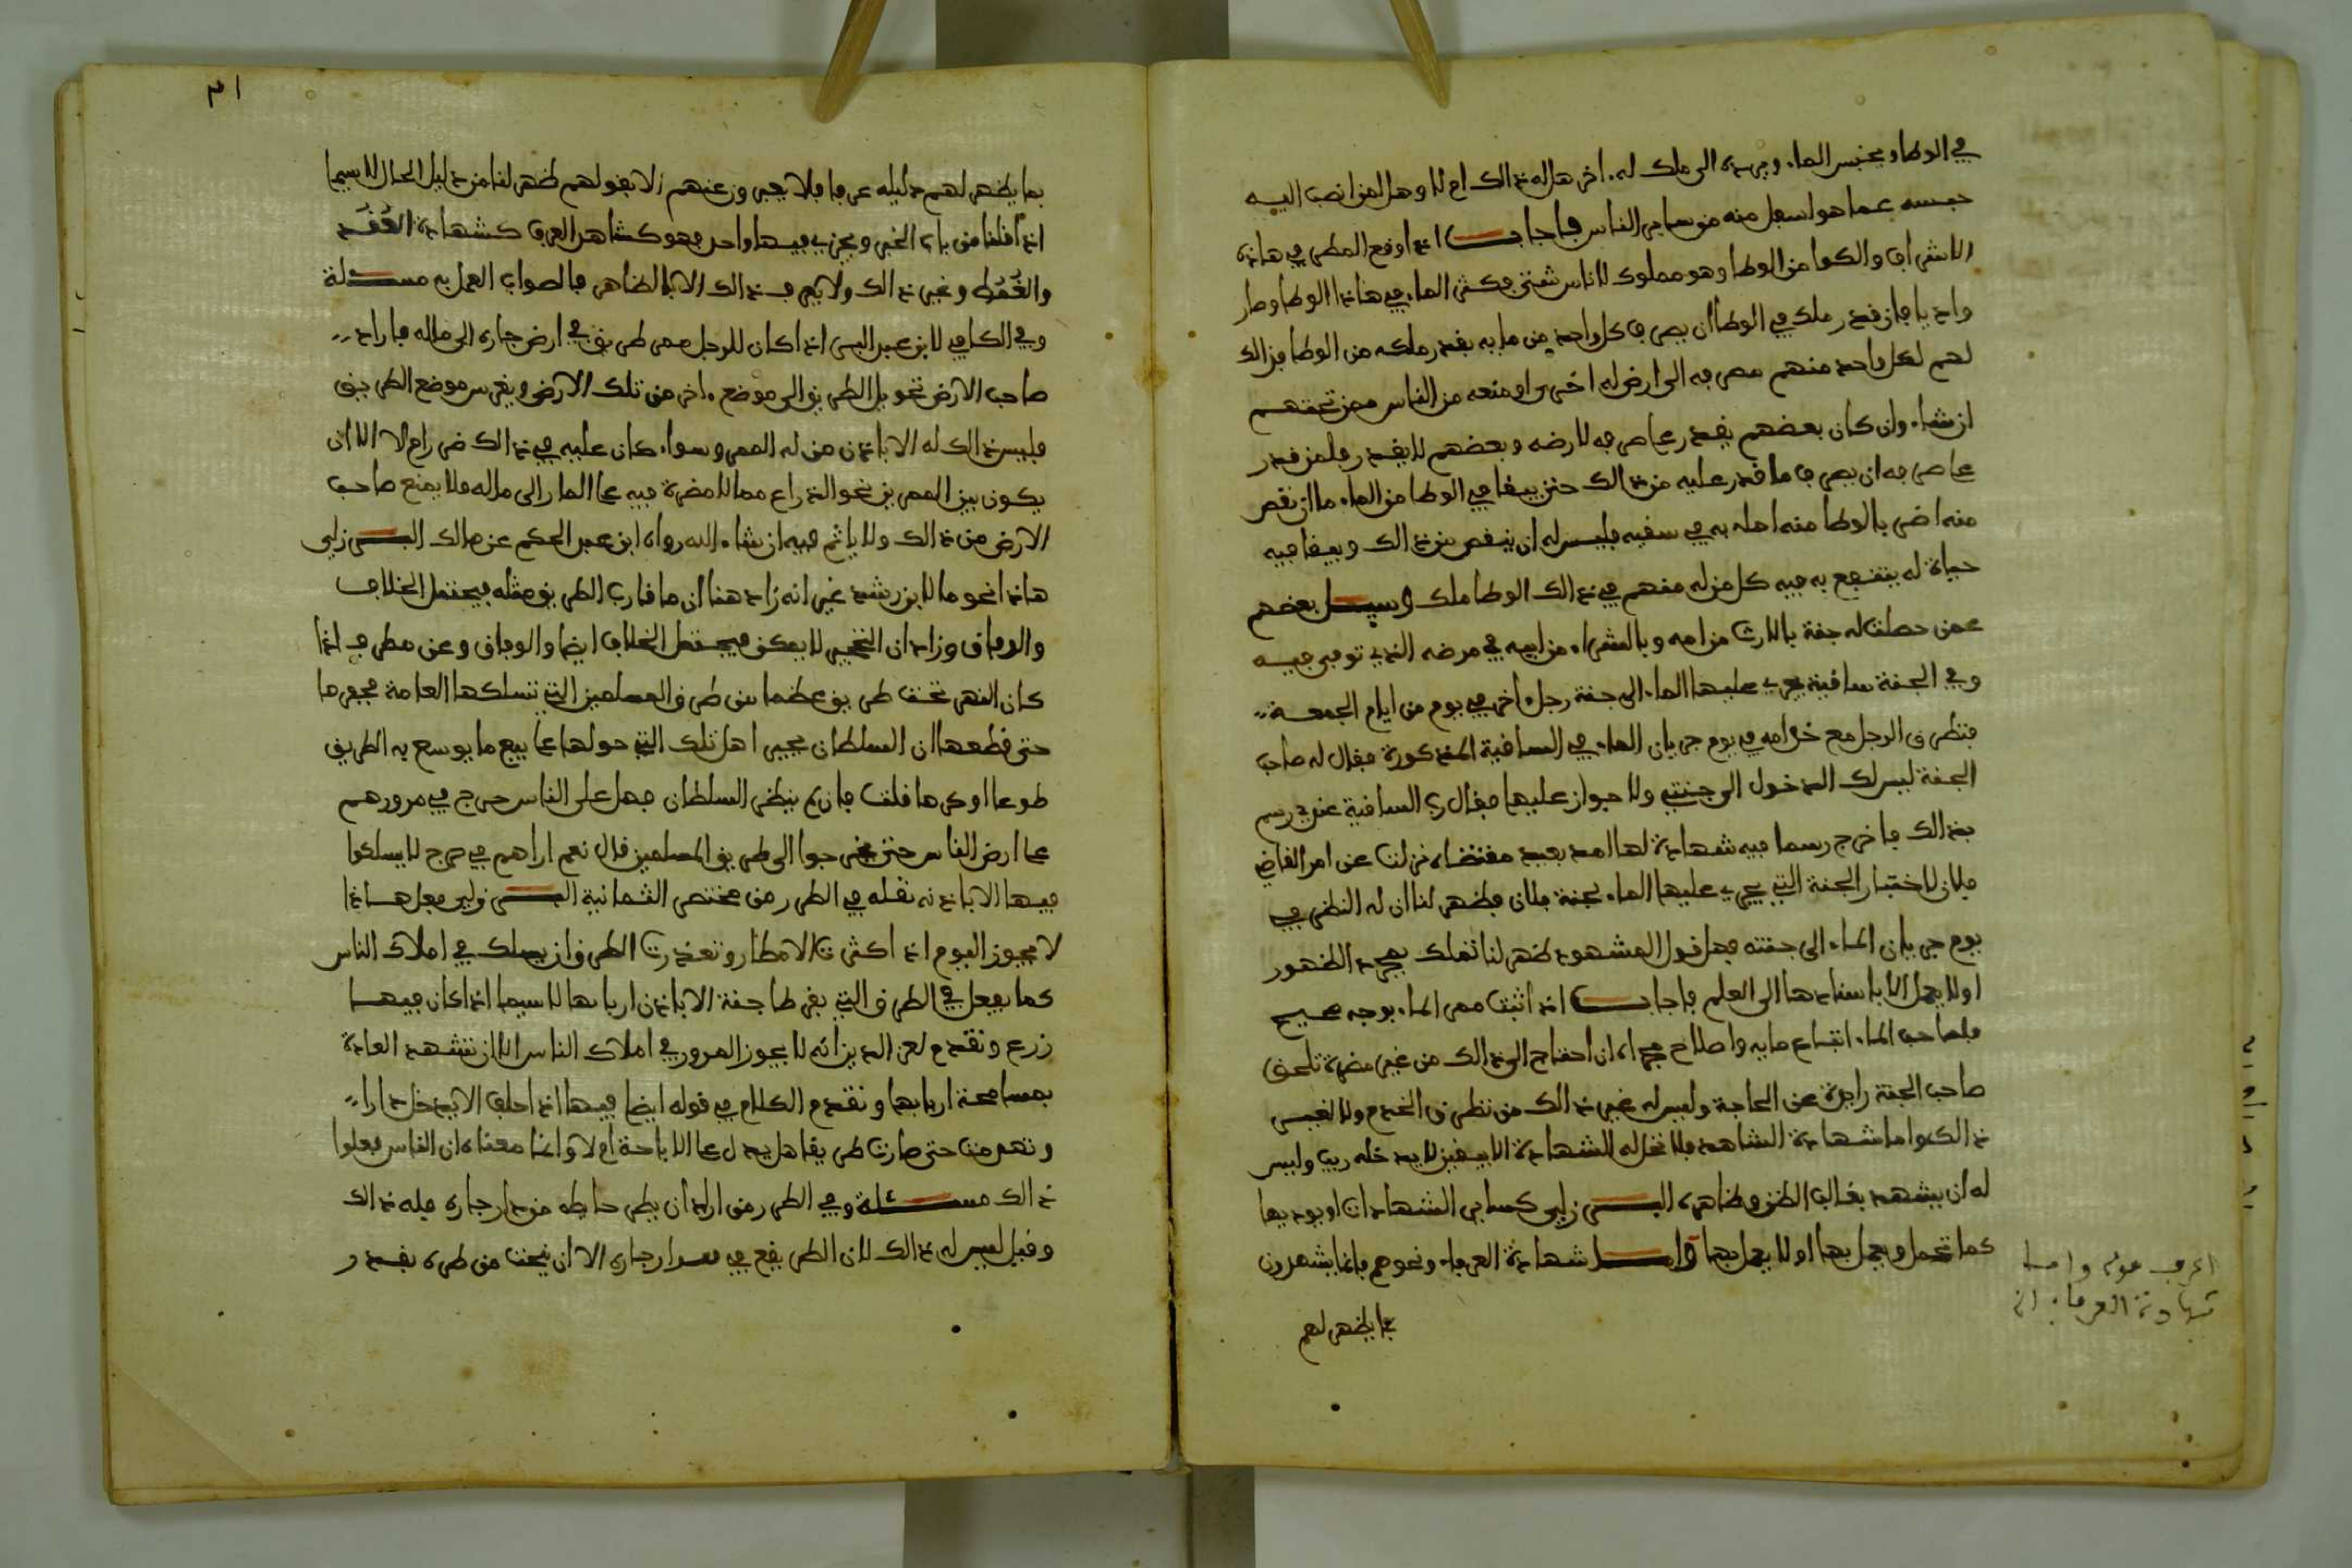 في الوطا ويحبس الماء ويرده الى ملك له ءاخر هل له ذالك ام لا وهل لمن انصب اليه
حبسه عما هو اسفل منه من ساير الناس فاجاب اذا وقع المطر في هاذه
الاشراف والكوا من الوطا وهو مملوك لاناس شتى فكثر الماء في هاذا الوطا وصار
واديا فان قدر ملك في الوطا ان يصرف كل واحد من مايه بقدر ملكه من الوطا فذالك
لهم لكل واحد منهم صرفه الى ارض له اخرى او منعه من الناس ممن تحتهم
ان شاء وان كان بعضهم يقدر على صرفه لارضه وبعضهم لا يقدر فلمن قدر
على صرفه ان يصرف ما قدر عليه من ذالك حتى يبقا في الوطا من الماء ما ان نقص
منه اضر بالوطا منه اهله به في سقيه فليس له ان ينقص من ذالك ويبقا فيه
حياة له ينتفع به فيه كل من له منهم في ذالك الوطا ملك وسيل بعضهم
عمن حصلت له جنة بالارث من امه وبالشراء من ابيه في مرضه الذي توفي فيه
وفي الجنة ساقية يجري عليها الماء الى جنة رجل ءاخر في يوم من ايام الجمعة
فتطرق الرجل مع خدامه في يوم جريان الماء في الساقية المذكورة فقال له صاحب
الجنة ليس لك الدخول الى جنتي ولا جواز عليها فقال رب الساقية عندي رسم
بذالك فاخرج رسما فيه شهادة لها امد بعيد مقتضاه نزلنا عن امر القاضي
فلان لاختبار الجنة التي يجري عليها الماء لجنة فلان فظهر لنا ان له النظر في
يوم جريان الماء الى جنته فهل قول المشهود ظهر لنا تملك بمجرد الظهور
اولا يعمل الا باسنادها الى العلم فاجاب اذا ثبت ممر الماء بوجه صحيح
فلصاحب الماء اتباع مايه واصلاح مجراه ان احتاج الى ذالك من غير مضرة تلحق
صاحب الجنة زايدة عن الحاجة وليس له غير ذالك من تطرق الخدم ولا لغيسر
ذالك واما شهادة الشاهد فلا تحل له الشهادة الا بيقين لا يدخله ريب وليس
له ان يشهد بغالب الظن وظاهره البرزلي كساير الشهادات او يوديها
كما تحمل ويعمل بها اولا يعمل بها واما شهادة العرفاء ونحوهم فانما يشهدون
بما يظهر لهم
اعرف قوله واما
شهادة العرفاء الخ
٣١
بما يظهر لهم دليله عرفا فلا يجب وزعنهم الا بقولهم ظهر لنا من دليل الحال لاسيما
اذا قلنا من باب الخبر ويجزي فيها واحد فهو كشاهد العرف كشهادة العُقَد
والقُمُط وغير ذالك ولا يعرف ذالك الا بالظاهر فالصواب العمل به مسئلة
وفي الكافي لابن عبد البر اذا كان للرجل ممر طريق في ارض جاره الى ماله فاراد
صاحب الارض تحويل الطريق الى موضع ءاخر من تلك الارض ويغرس موضع الطريق
فليس ذالك له الا باذن من له الممر وسواء كان عليه في ذالك ضرر ام لا الا ان
يكون بين الممرين نحو الذراع مما لا مضرة فيه على المار الى ماله فلا يمنع صاحب
الارض من ذالك ولا ياثم فيه ان شاء الله رواه ابن عبد الحكم عن مالك البرزلي
هاذا نحو ما لابن رشد غير انه زاد هنا ان ما قارب الطريق مثله فيحتمل الخلاف
والوفاق وزاد ان التخيير لا يمكن فيحتمل الخلاف ايضا والوفاق وعن مطرف اذا
كان النهر تحت طريق عظما من طرق المسلمين التي تسلكها العامة فحفرها
حتى قطعها ان السلطان يجبر اهل تلك التي حولها على بيع ما يوسع به الطريق
طوعا او كرها قلت فان لم ينظر السلطان فهل على الناس حرج في مرورهم
على ارض الناس حتى يخرجوا الى طريق المسلمين قال نعم اراهم في حرج لا يسلكوا
فيها الا باذنه نقله في الطرر من مختصر الثمانية البرزلي فعل هاذا
لا يجوز اليوم اذا كثرت الامطار وتعذرت الطرق ان يسلك في املاك الناس
كما يفعل في الطرق التي بقرطاجنة الا باذن اربابها لاسيما اذا كان فيها
زرع وتقدم لعز الدين انه لا يجوز المرور في املاك الناس الا ان تشهد العادة
بمسامحة اربابها وتقدم الكلام في قوله ايضا فيها اذا حلف الا يدخل دارا
وتهدمت حتى صارت طريقا هل يدل على الاباحة ام لا وانما معناه ان الناس فعلوا
ذالك مسئلة وفي الطرر من اراد ان يطر حايطه من دار جاره فله ذالك
وقيل ليس له ذالك لان الطر يقع في دار جاره الا ان ينحت من طره بقدر